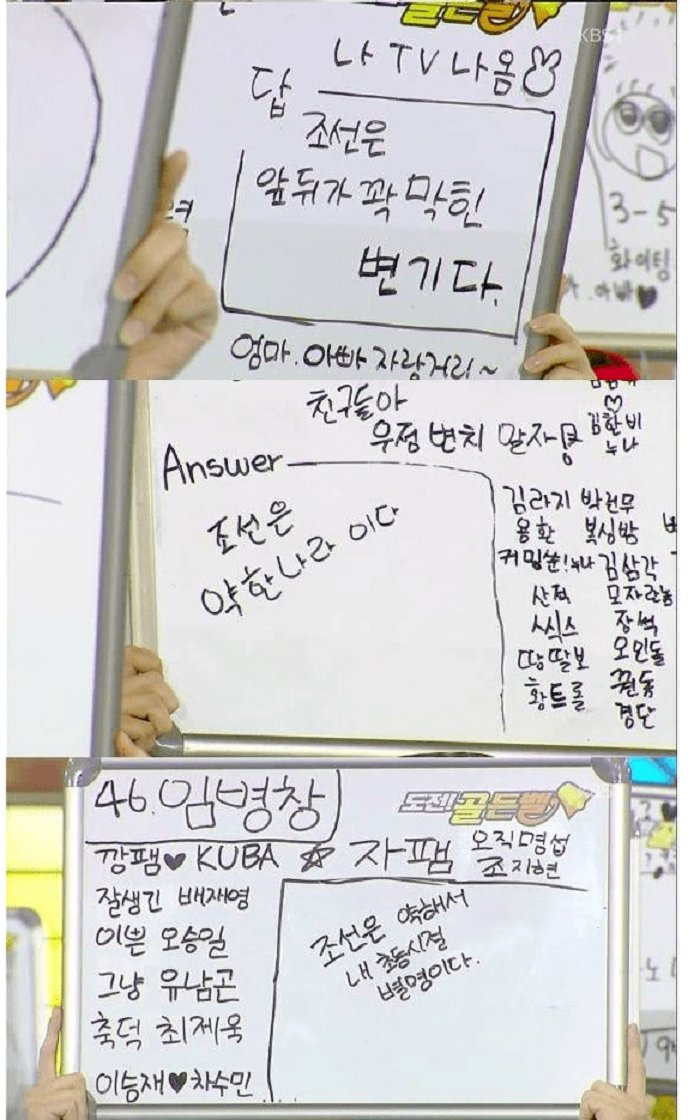 골든벨
KBS1
나 TV 나옴
답
조선은
앞뒤가 꽉 막힌
변기다.
엄마. 아빠 자랑거리~
3-5
화이팅
아빠♥
친구들아
우정 변치 말자
김한비
누나
Answer
조선은
약한나라 이다
김라지 박천무
용환 복싱밤
커밍쑨!누나 김삼각
산적 모자란놈
장썩
땅딸보 오인돌
황트롤 꿘동
경단
46. 임병창
도전골든벨
깡팸♥ KUBA ☆ 자팸 오직명섭
조지현
잘생긴 배재영
이쁜 오승일
그냥 유남곤
축덕 최제욱
이승재♥차수민
조선은 약해서
내 초등시절
별명이다.